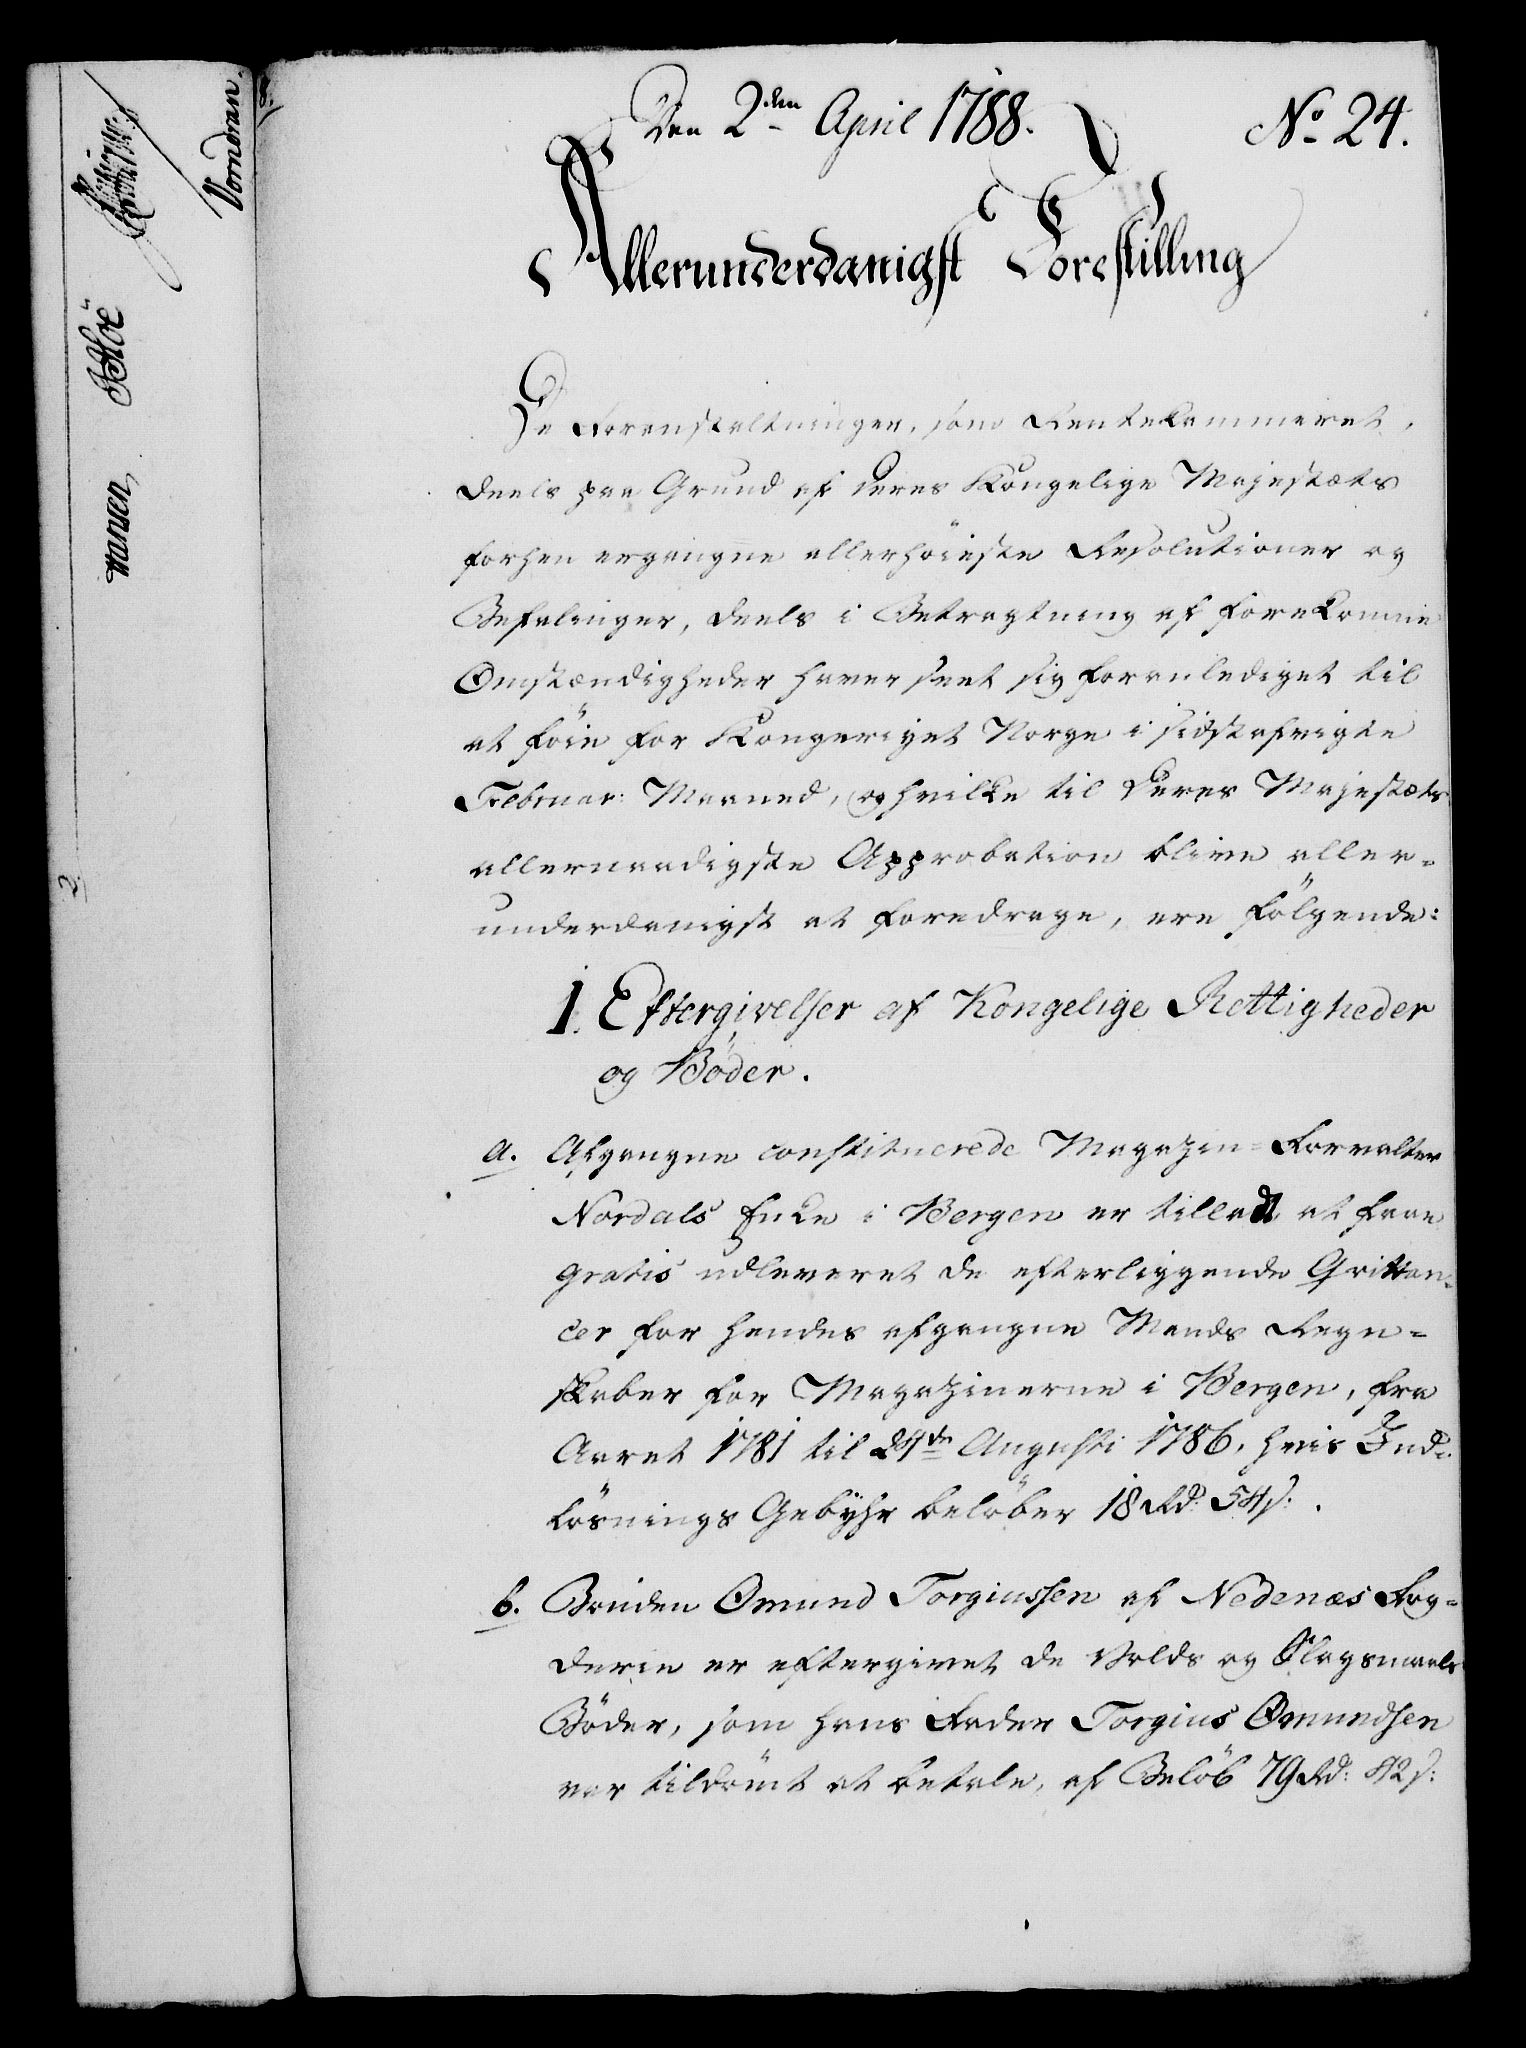 Den 2den April 1788.
No 24.
Allerunderdanigst Forestilling
De Foranstaltninger, som Rentekammeret,
deels paa Grund af Deres Kongelige Majestæts
forhen ergangne allerhöieste Resolutioner og
Befalinger, deels i Betragtning af forekomne
Omstændigheder haver seet sig foranlediget til
at föie for Kongeriget Norge i sidstafvigte
Februar: Maaned, og hvilke til Deres Majestæts
allernaadigste Approbation blive aller=
underdanigst at foredrage, ere fölgende:
1. Eftergivelser af Kongelige Rettigheder
og Böder.
a. Afgangne constituerede Magazin=Forvalter
Nordals Enke i Bergen er tilladt at faae
gratis udleveret de efterliggende Qvittan=
cer for hendes afgangne Mands Regn=
skaber for Magazinerne i Bergen, fra
Aaret 1781 til 24de Augusti 1786. hvis Ind=
lösnings Gebyhr belöber 18 Rd: 54 s:.
b. Bonden Omund Torgiussen af Nedenæs Fog=
derie er eftergivet de Volds og Slagsmaals
Böder, som hans Fader Torgius Omundsen
var tildömt at betale, af Belöb 79 Rd: 42 s:
Vorndran.
hansen